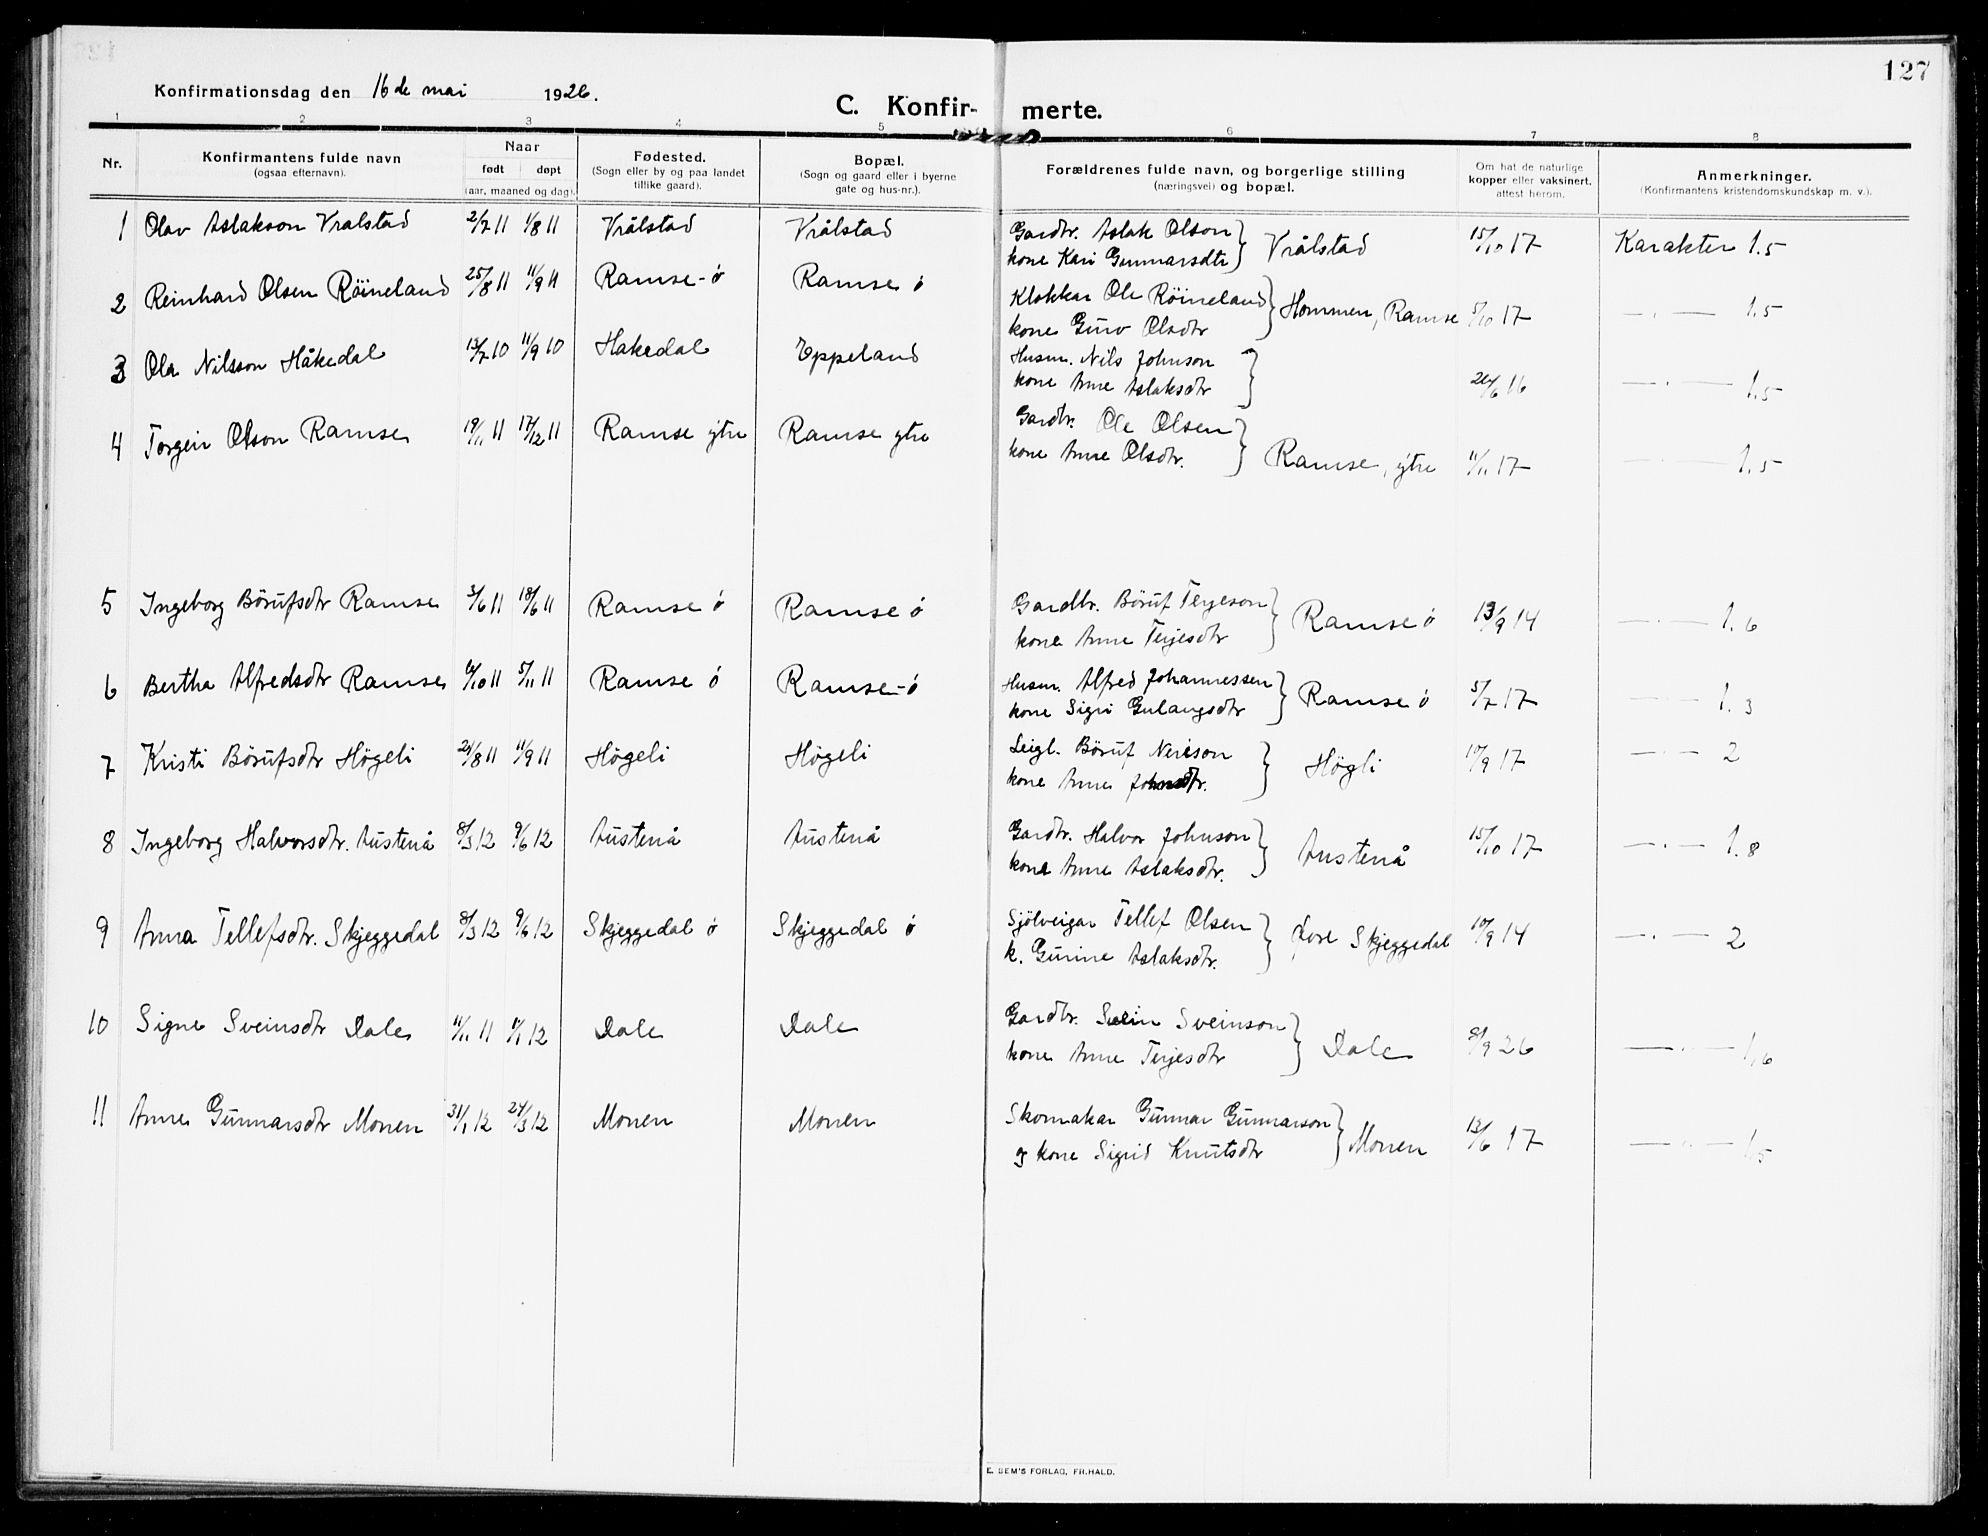 127
Konfirmationsdag den 16de mai 1926.
C. Konfir- merte.
1 2 3 4 5 6 7 8
Nr. Konfirmantens fulde navn (ogsaa efternavn). Naar født døpt (aar, maaned og dag). Fødested. (Sogn eller by og paa landet tillike gaard). Bopæl. (Sogn og gaard eller i byerne gate og hus-nr.). Forældrenes fulde navn, og borgerlige stilling (næringsvei) og bopæl. Om hat de naturlige kopper eller vaksinert, attest herom. Anmerkninger. (Konfirmantens kristendomskundskap m. v.).
1 Olav Aslakson Vrålstad 2/7 11 1/8 11 Vrålstad Vrålstad Gardbr. Aslak Olson } Vrålstad 15/10 17 Karakter 1.5
kone Kari Gunnarsdtr
2 Reinhard Olsen Röineland 25/8 11 11/9 11 Ramse-ø Ramse ø Klokkar Ole Röineland } Hommen, Ramse 5/10 17 — . — 1.5
kone Guro Olsdtr
3 Ola Nilsson Håkedal 13/7 10 11/9 10 Hakedal Eppeland Husm. Nils Johnson } 24/6 16 — . — 1.5
kone Anne Aslaksdtr
4 Torgeir Olson Ramse 19/11 11 17/12 11 Ramse ytre Ramse ytre Gardbr. Ole Olsen } Ramse, ytre 11/11 17 — . — 1.5
kone Anne Olsdtr.
5 Ingeborg Börufsdtr Ramse 3/6 11 18/6 11 Ramse ø Ramse ø Gardbr. Böruf Terjeson } Ramse ø 13/9 14 — . — 1.6
kone Anne Terjesdtr
6 Bertha Alfredsdtr Ramse 6/10 11 5/11 11 Ramse ø Ramse-ø Husm. Alfred Johannessen } Ramse ø 5/7 17 — . — 1.3
kone Sigri Gulaugsdtr
7 Kristi Börufsdtr Högeli 21/8 11 11/9 11 Högeli Högeli Leigl. Böruf Nerison } Högli 10/9 17 — . — 2
kone Anne Johnsdtr.
8 Ingeborg Halvorsdtr. Austenå 8/3 12 9/6 12 Austenå Austenå Gardbr. Halvor Johnson } Austenå 15/10 17 — . — 1.8
kone Anne Aslaksdtr.
9 Anna Tellefsdtr. Skjeggedal 8/3 12 9/6 12 Skjeggedal ø Skjeggedal ø Sjölveigar Tellef Olsen } Övre Skjeggedal 10/9 14 — . — 2
k. Gurine Aslaksdtr.
10 Signe Sveinsdtr Dale 11/11 11 1/1 12 Dale Dale Gardbr. Svein Sveinson } Dale 8/9 26 — . — 1,6
kone Anne Terjesdtr
11 Anne Gunnarsdtr Monen 31/1 12 24/3 12 Monen Monen Skomakar Gunnar Gunnarson } Monen 13/6 17 — . — 1.5
og kone Sigrid Knutsdtr
E. SEM'S FORLAG, FR.HALD.